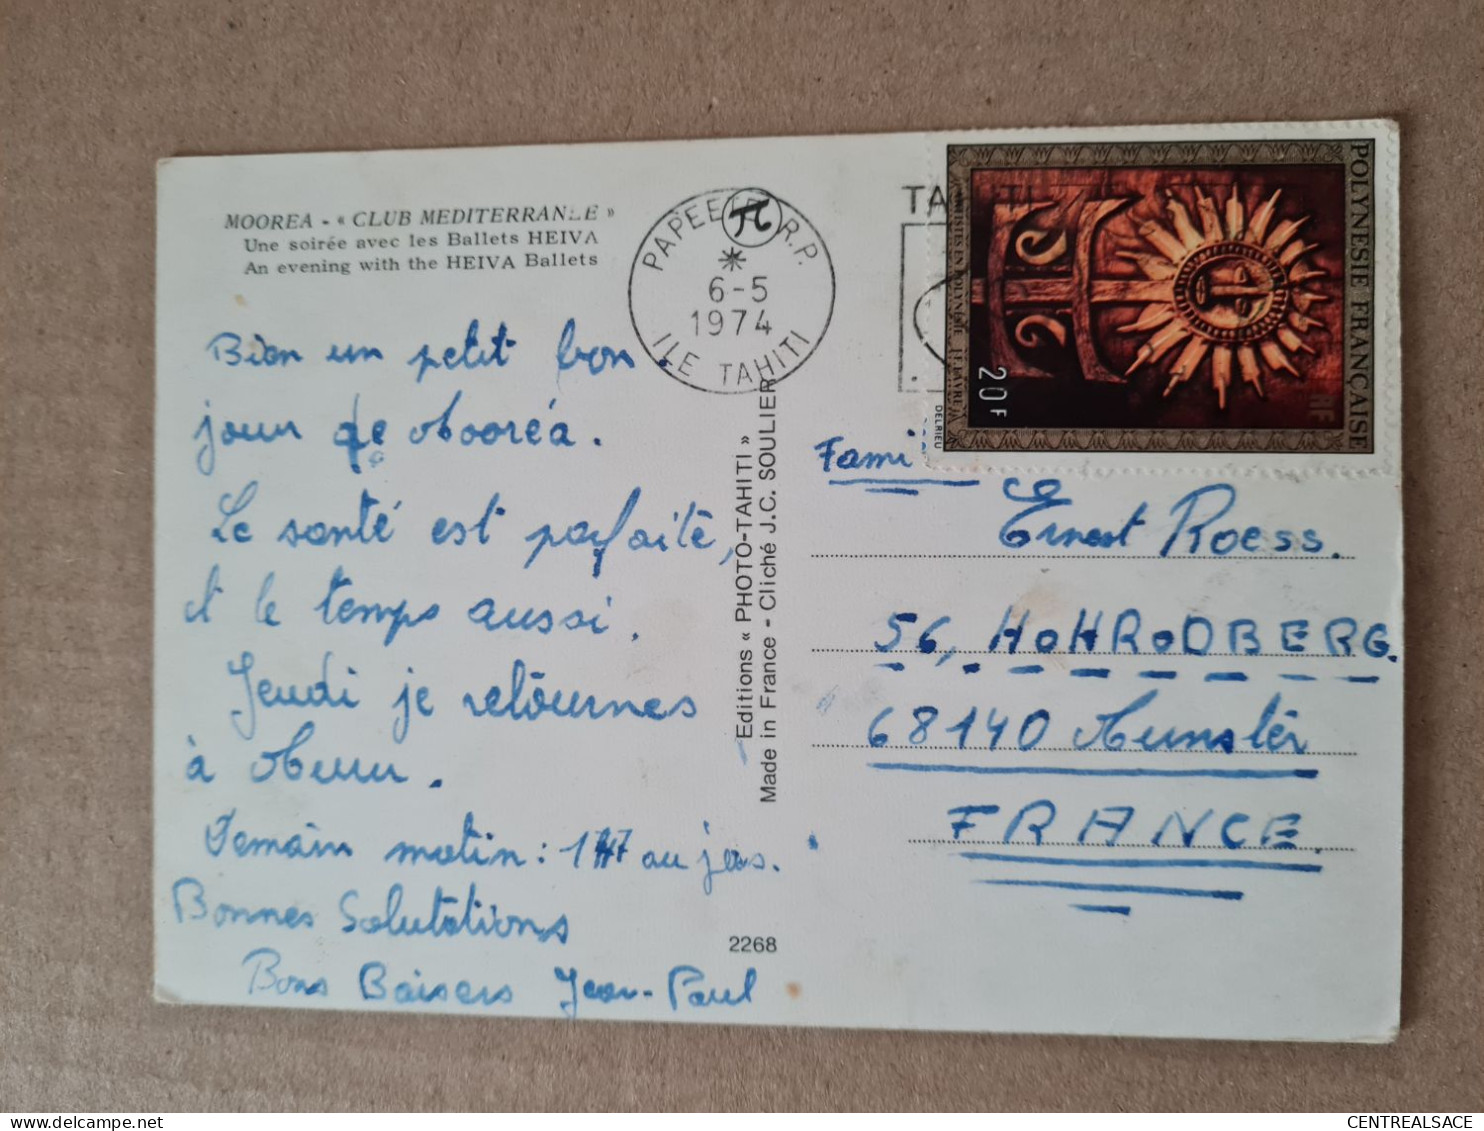 MOOREA - « CLUB MEDITERRANEE »
Une soirée avec les Ballets HEIVA
An evening with the HEIVA Ballets
Bien un petit bon
jour de Mooréa.
La santé est parfaite,
et le temps aussi.
Jeudi je retournes
à Muru.
Demain matin : 147 au jus.
Bonnes Salutations
Bons Baisers Jean-Paul
PAPEETE R.P.
6-5
1974
ILE TAHITI
Editions « PHOTO-TAHITI »
Made in France - Cliché J.C. SOULIER
2268
TAHITI
POLYNESIE FRANÇAISE
RF
ARTISTES EN POLYNESIE J.FAVRE
20F
DELRIEU
Fami
Ernest Roess.
56, HOHRODBERG.
68140 Munster
FRANCE.
CENTREALSACE